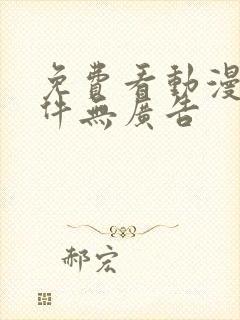 免費看動漫
件無廣告
郝宏